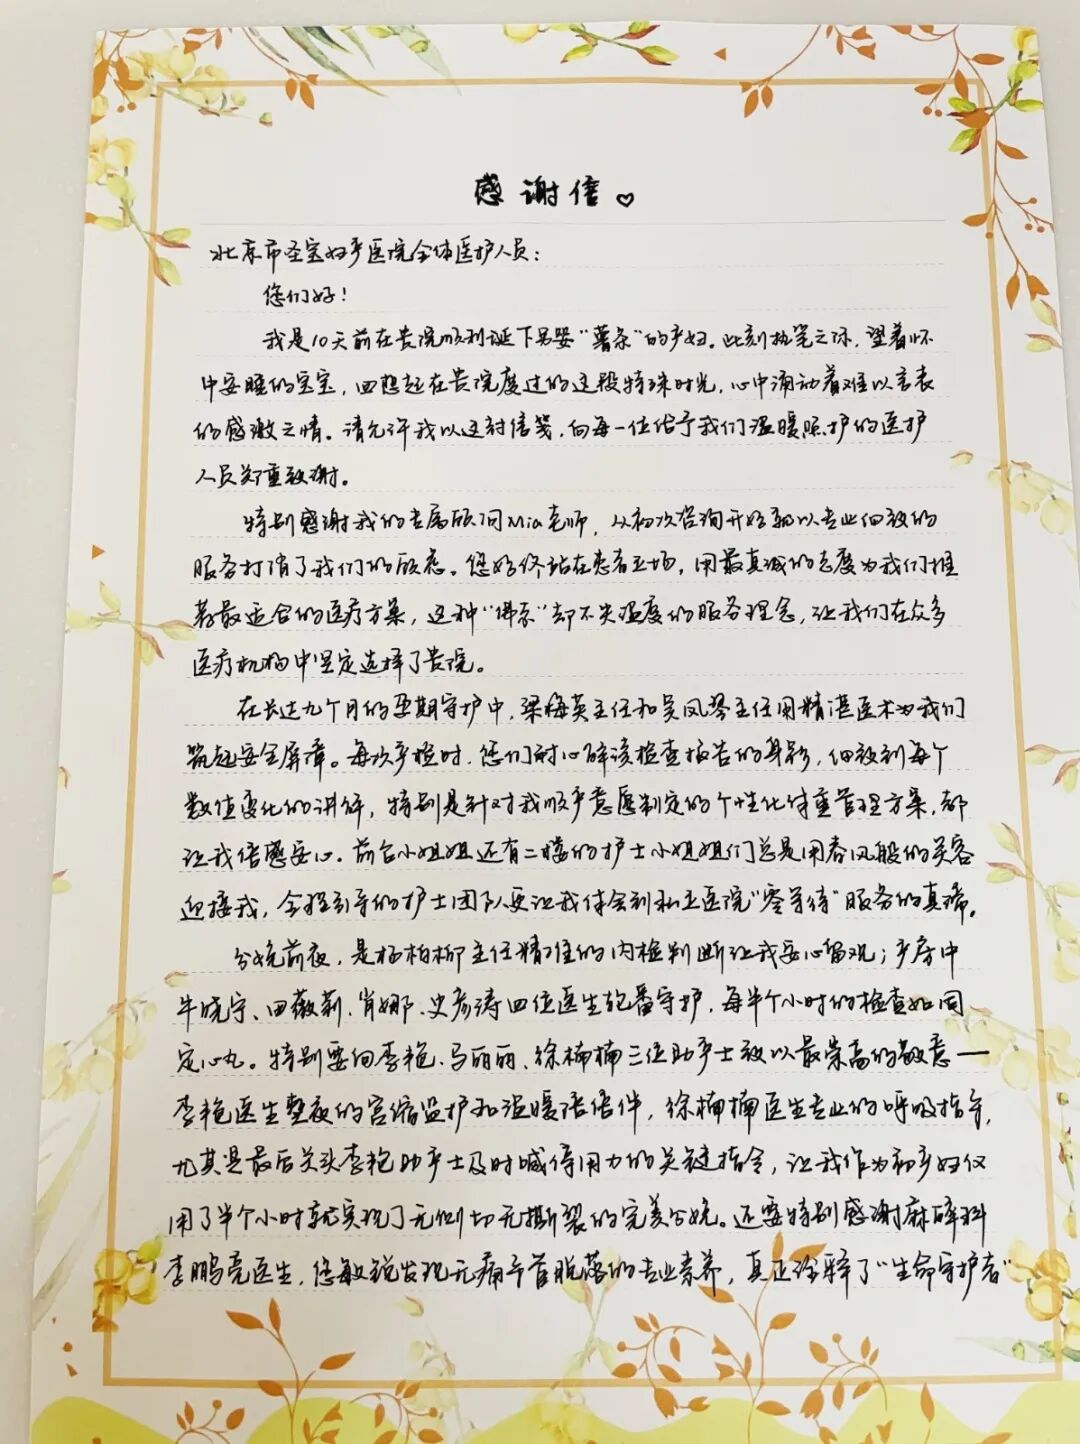 感谢信♡
北京市圣宝妇产医院全体医护人员：
您们好！
我是10天前在贵院顺利诞下男婴“薯条”的产妇。此刻执笔之际，望着怀
中安睡的宝宝，回想起在贵院度过的这段特殊时光，心中涌动着难以言表
的感激之情。请允许我以这封信笺，向每一位给予我们温暖照护的医护
人员郑重致谢。
特别感谢我的专属顾问Mia老师，从初次咨询开始都以专业细致的
服务打消了我们的顾虑。您始终站在患者立场，用最真诚的态度为我们推
荐最适合的医疗方案，这种“佛系”却不失温度的服务理念，让我们在众多
医疗机构中坚定选择了贵院。
在长达九个月的孕期守护中，梁梅英主任和吴凤琴主任用精湛医术为我们
筑起安全屏障。每次产检时，您们耐心解读检查报告的身影，细致到每个
数值变化的讲解，特别是针对我顺产意愿制定的个性化体重管理方案，都
让我倍感安心。前台小姐姐还有二楼的护士小姐姐们总是用春风般的笑容
迎接我，全程引导的护士团队更让我体会到私立医院“零等待”服务的真谛。
分娩前夜，是杨柏柳主任精准的内检判断让我安心留观；产房中
牛晓宇、田薇莉、肖娜、史彦涛四位医生轮番守护，每半个小时的检查如同
定心丸。特别要向李艳、马丽丽、徐楠楠三位助产士致以最崇高的敬意——
李艳医生整夜的宫缩监护和温暖话语伴，徐楠楠医生专业的呼吸指导，
尤其是最后关头李艳助产士及时喊停用力的关键指令，让我作为初产妇仅
用了半个小时就实现了无侧切无撕裂的完美分娩。还要特别感谢麻醉科
李鹏亮医生，您敏锐发现无痛导管脱落的专业素养，真正诠释了“生命守护者”